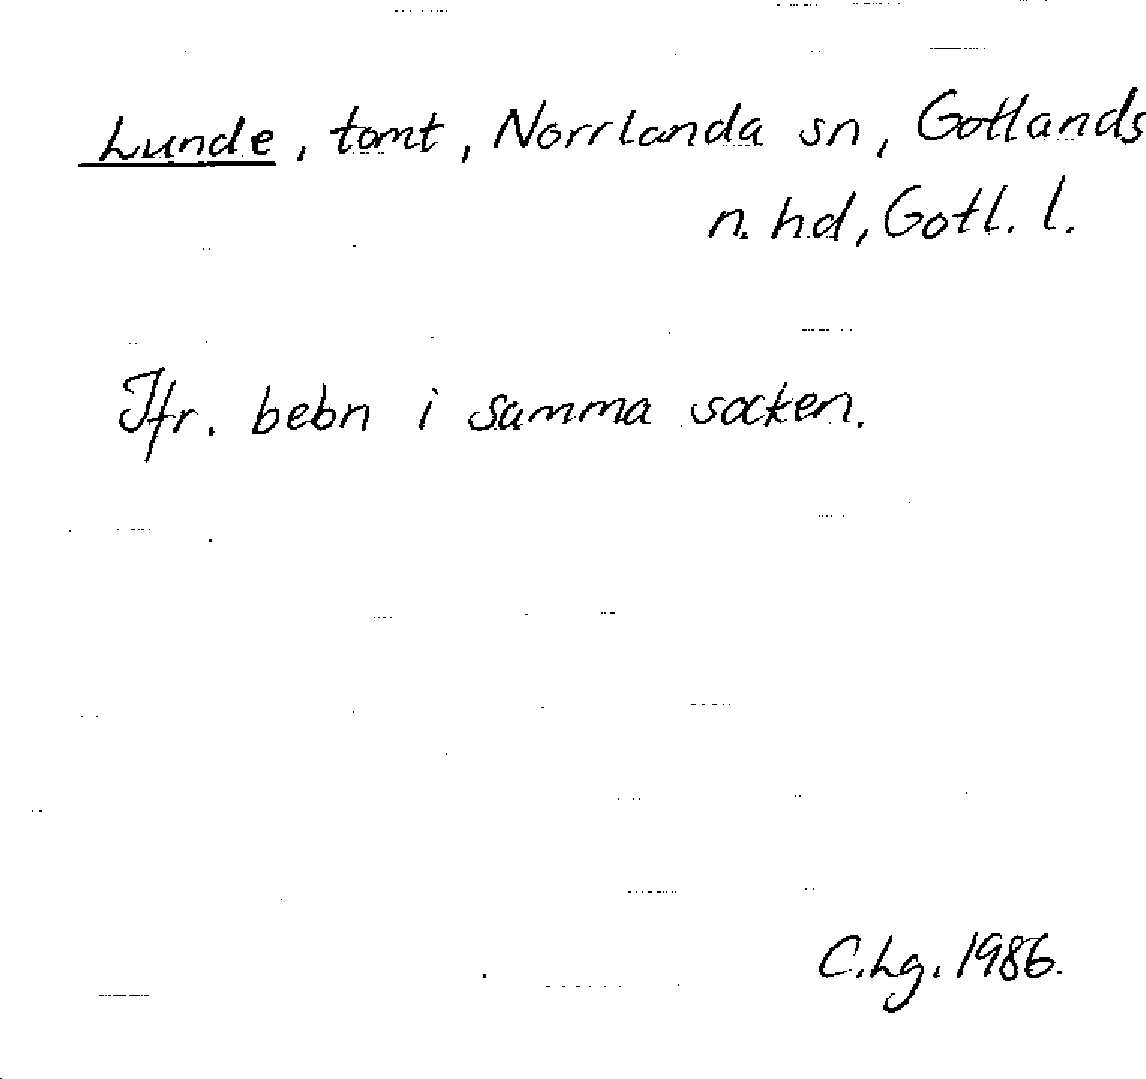 Lunde, tomt, Norrlanda sn, Gotlands
n. hd, Gotl. l.
Jfr. bebn i samma socken.
C.Lg. 1986.